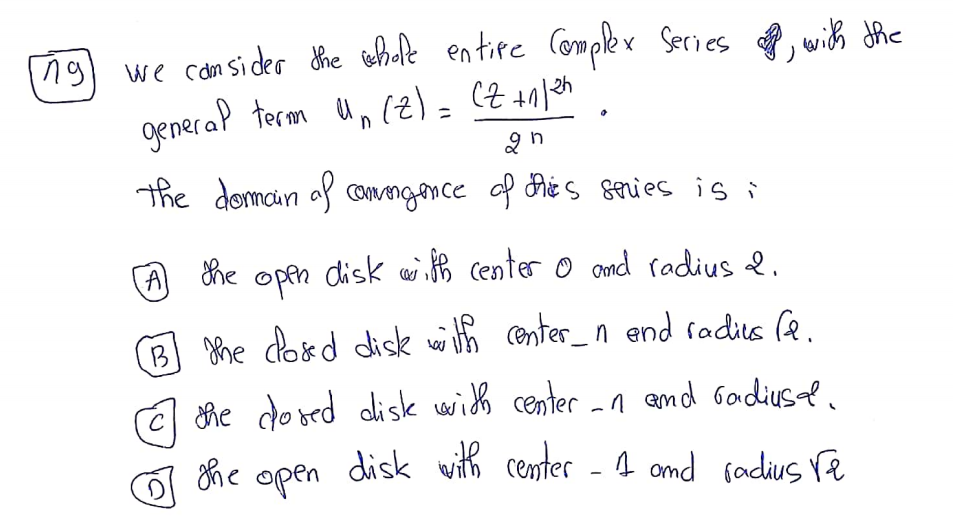 19 we consider the whole entire Complex Series , with the
general term Un (Z) = (Z +1)^2n / 2^n .
the domain of convergence of this series is :
A the open disk with center 0 and radius 2.
B the closed disk with center -1 and radius √2.
C the closed disk with center -1 and radius 2.
D the open disk with center - 1 and radius √2